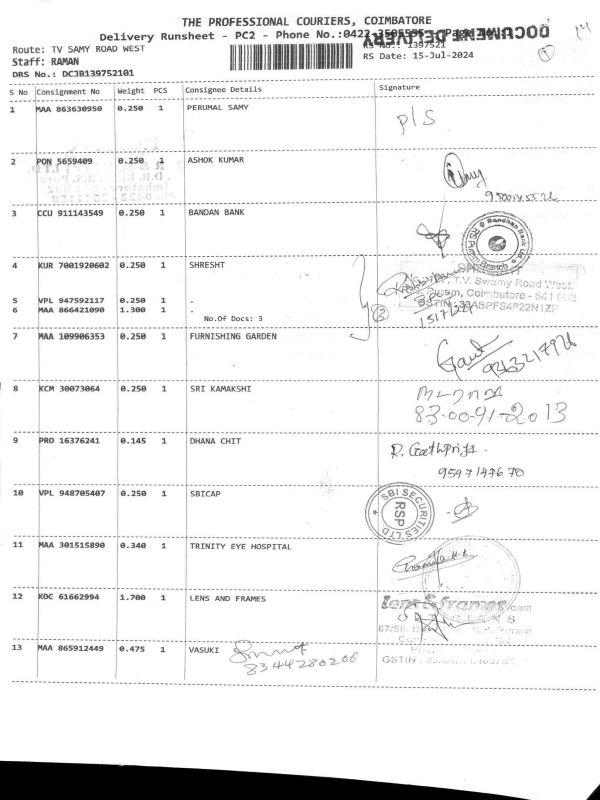 THE PROFESSIONAL COURIERS, COIMBATORE
Delivery Runsheet - PC2 - Phone No.:0422
DOCUMENT DELIVERY
Route: TV SAMY ROAD WEST
RS No.: 1397521
Staff: RAMAN
RS Date: 15-Jul-2024
DRS No.: DCJB139752101
S No Consignment No Weight PCS Consignee Details Signature
1 MAA 863630950 0.250 1 PERUMAL SAMY
P/S
2 PON 5659409 0.250 1 ASHOK KUMAR
3 CCU 911143549 0.250 1 BANDAN BANK
Bandhan Bank Ltd
4 KUR 7001920602 0.250 1 SHRESHT
T.V. Swamy Road West,
Coimbatore - 641 002
5 VPL 947592117 0.250 1 .
6 MAA 866421090 1.300 1 .
No.Of Docs: 3
3
7 MAA 109906353 0.250 1 FURNISHING GARDEN
9363217926
8 KCM 30073064 0.250 1 SRI KAMAKSHI
83-00-91-2013
9 PRO 16376241 0.145 1 DHANA CHIT
9597147670
10 VPL 948705407 0.250 1 SBICAP
SBI SECURITIES LTD
RSP
11 MAA 301515890 0.340 1 TRINITY EYE HOSPITAL
12 KOC 61662994 1.700 1 LENS AND FRAMES
Lens & frames.com
OPTICIANS
GSTIN
13 MAA 865912449 0.475 1 VASUKI
8344280206